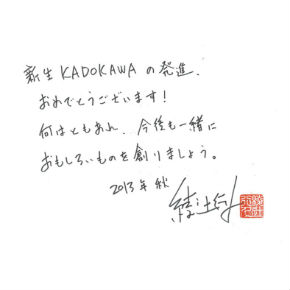 新生KADOKAWAの発進、
おめでとうございます!
何はともあれ、今後も一緒に
おもしろいものを創りましょう。
2013年 秋
綾辻行人